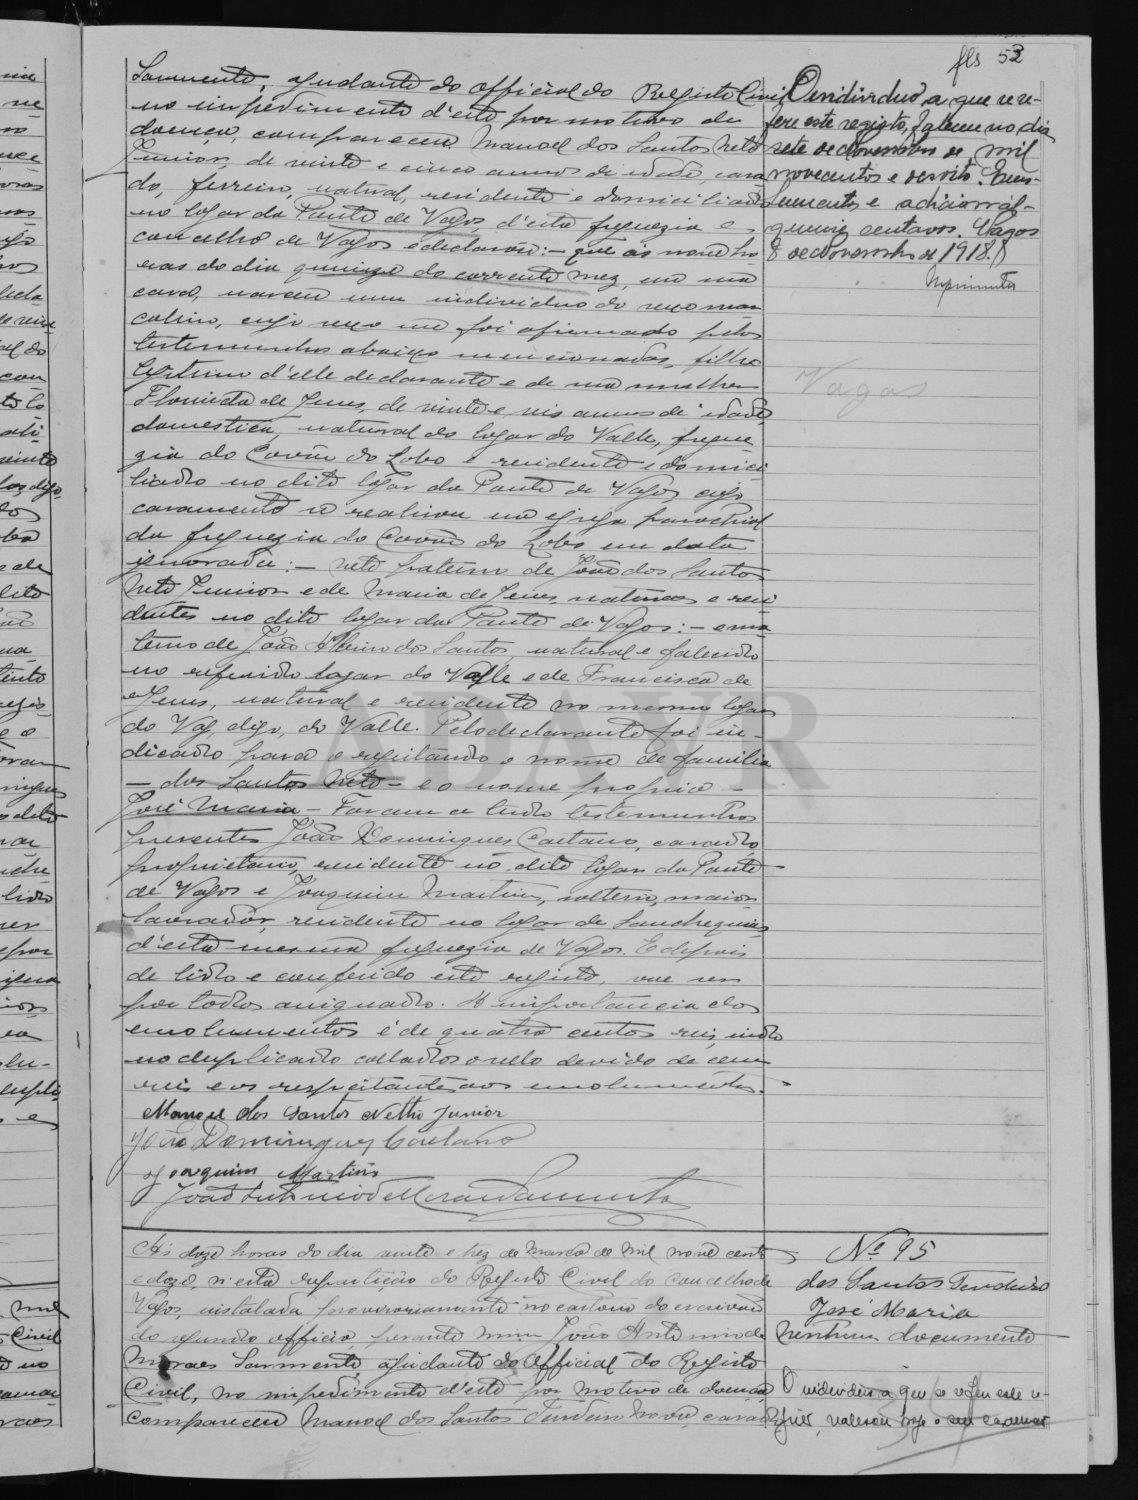 fls 53
Sarmento, ajudante do official do Registo Civil
no impedimento d'este por motivo de
doença, compareceu Manoel dos Santos Neto
Junior, de vinte e cinco annos de idade, casa
do, ferreiro, natural, residente e domiciliado
no logar da Ponte de Vagos, d'esta freguezia e
concelho de Vagos e declarou: – que ás nove ho
ras do dia quinze do corrente mez, em sua
casa, nasceu um individuo do sexo mas
culino, cujo sexo me foi afirmado pelas
testemunhas abaixo mencionadas, filho
legitimo d'elle declarante e de sua mulher
de Jesus, de vinte e seis annos de idade,
domestica, natural do logar do Valle, fregue
zia do Covão do Lobo e residente e domici
liada no dito logar da Ponte de Vagos, cujo
casamento se realisou na egreja parochial
da freguezia do Covão do Lobo em data
ignorada: – neto paterno de João dos Santos
Neto Junior e de Maria de Jesus, naturaes e resi
dentes no dito logar da Ponte de Vagos: – e ma
terno de João dos Santos, natural e falecido
no referido logar do Valle e de Francisca de
Jesus, natural e residente no mesmo logar
do Vag, digo, do Valle. Pelo declarante foi in-
dicado para o registando o nome de familia
– dos Santos Neto – e o nome proprio –
José Maria – Foram a tudo testemunhas
presentes João Domingues Caetano, casado,
proprietario, residente no dito logar da Ponte
de Vagos e Joaquim Martins, solteiro, maior
lavrador, residente no logar de
d'esta mesma freguezia de Vagos. E depois
de lido e conferido este registo, vae ser
por todos assignado. A importancia dos
emolumentos é de quatro centos reis, indo
no duplicado collados o sello devido de cem
reis e os respeitantes aos emolumentos.
Manoel dos Santos Netto Junior
João Domingues Caetano
Joaquim Martins
João Antonio de Moraes Sarmento
O individuo, a que se re-
fere este registo, faleceu no dia
sete de Novembro de mil
novecentos e desoito. Emo-
lumentos e adicionaes
quinze centavos. Vagos
8 de Novembro de 1918.
Vagos
ADAVR
A's doze horas do dia vinte e trez de Março de mil nove centos
e doze, n'esta repartição do Registo Civil do concelho de
Vagos, installada provisoriamente no cartorio do escrivão
do segundo officio, perante mim João Antonio de
Moraes Sarmento, ajudante do Official do Registo
Civil, no impedimento d'este por motivo de doença
compareceu Manoel dos Santos Tendeiro Novo, casado
Nº 95
dos Santos Tendeiro
José Maria
Nenhum documento
O individuo a que se refere este re-
gisto,